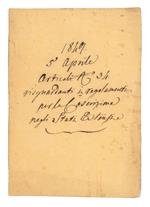 1849
5 Aprile
Articoli N° 34
risguardanti il regolamento
per la Coscrizione
negli Stati Estensi